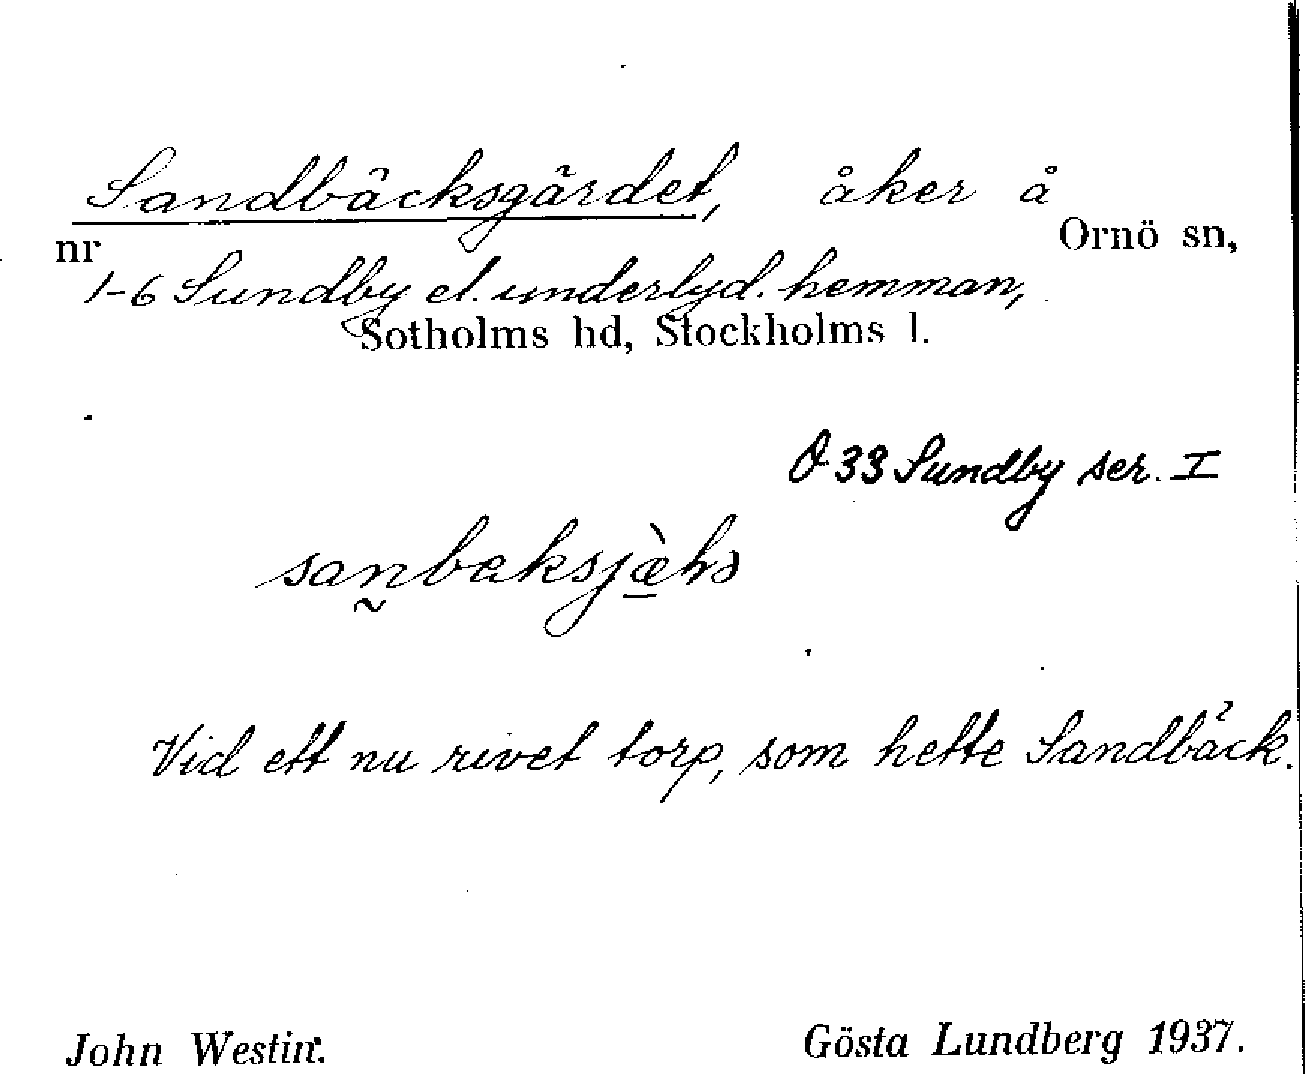 Sandbäcksgärdet, åker å
nr Ornö sn,
1-6 Sundby el. underlyd. hemman,
Sotholms hd, Stockholms l.
O 33 Sundby ser. I
Vid ett nu rivet torp, som hette Sandbäck.
John Westin. Gösta Lundberg 1937.